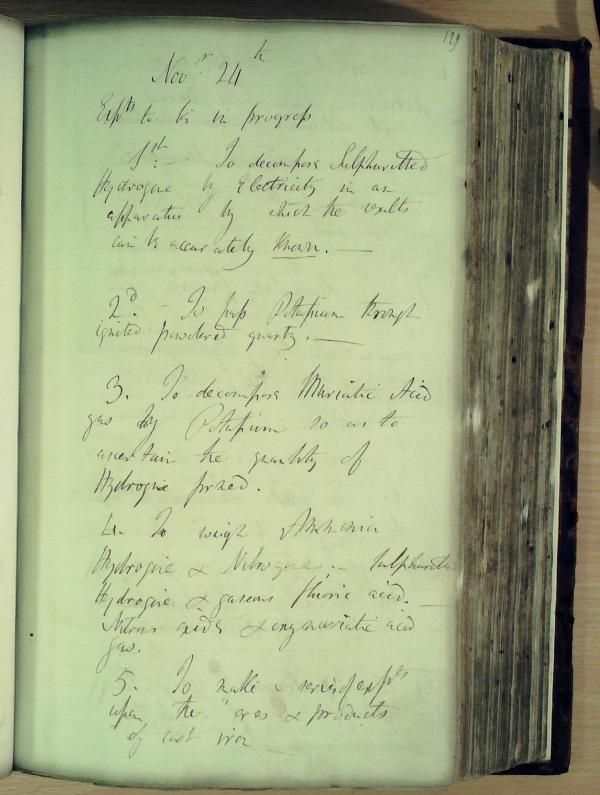 129
Novr 24th
Expts to be in progress
1st:- To decompose Sulphuretted
Hydrogene by Electricity in an
apparatus by which the results
can be accurately known. —
2d. - To pass Potassium through
ignited powdered quartz. —
3. To decompose Muriatic Acid
gas by Potassium so as to
ascertain the quantity of
Hydrogene formed.
4. To weigh Ammonia
Hydrogene & Nitrogene. - Sulphuretted
Hydrogene & gaseous fluoric acid. —
Nitrous oxide & oxymuriatic acid
gas.
5. To make a series of expts
upon the ores & products
of cast iron —